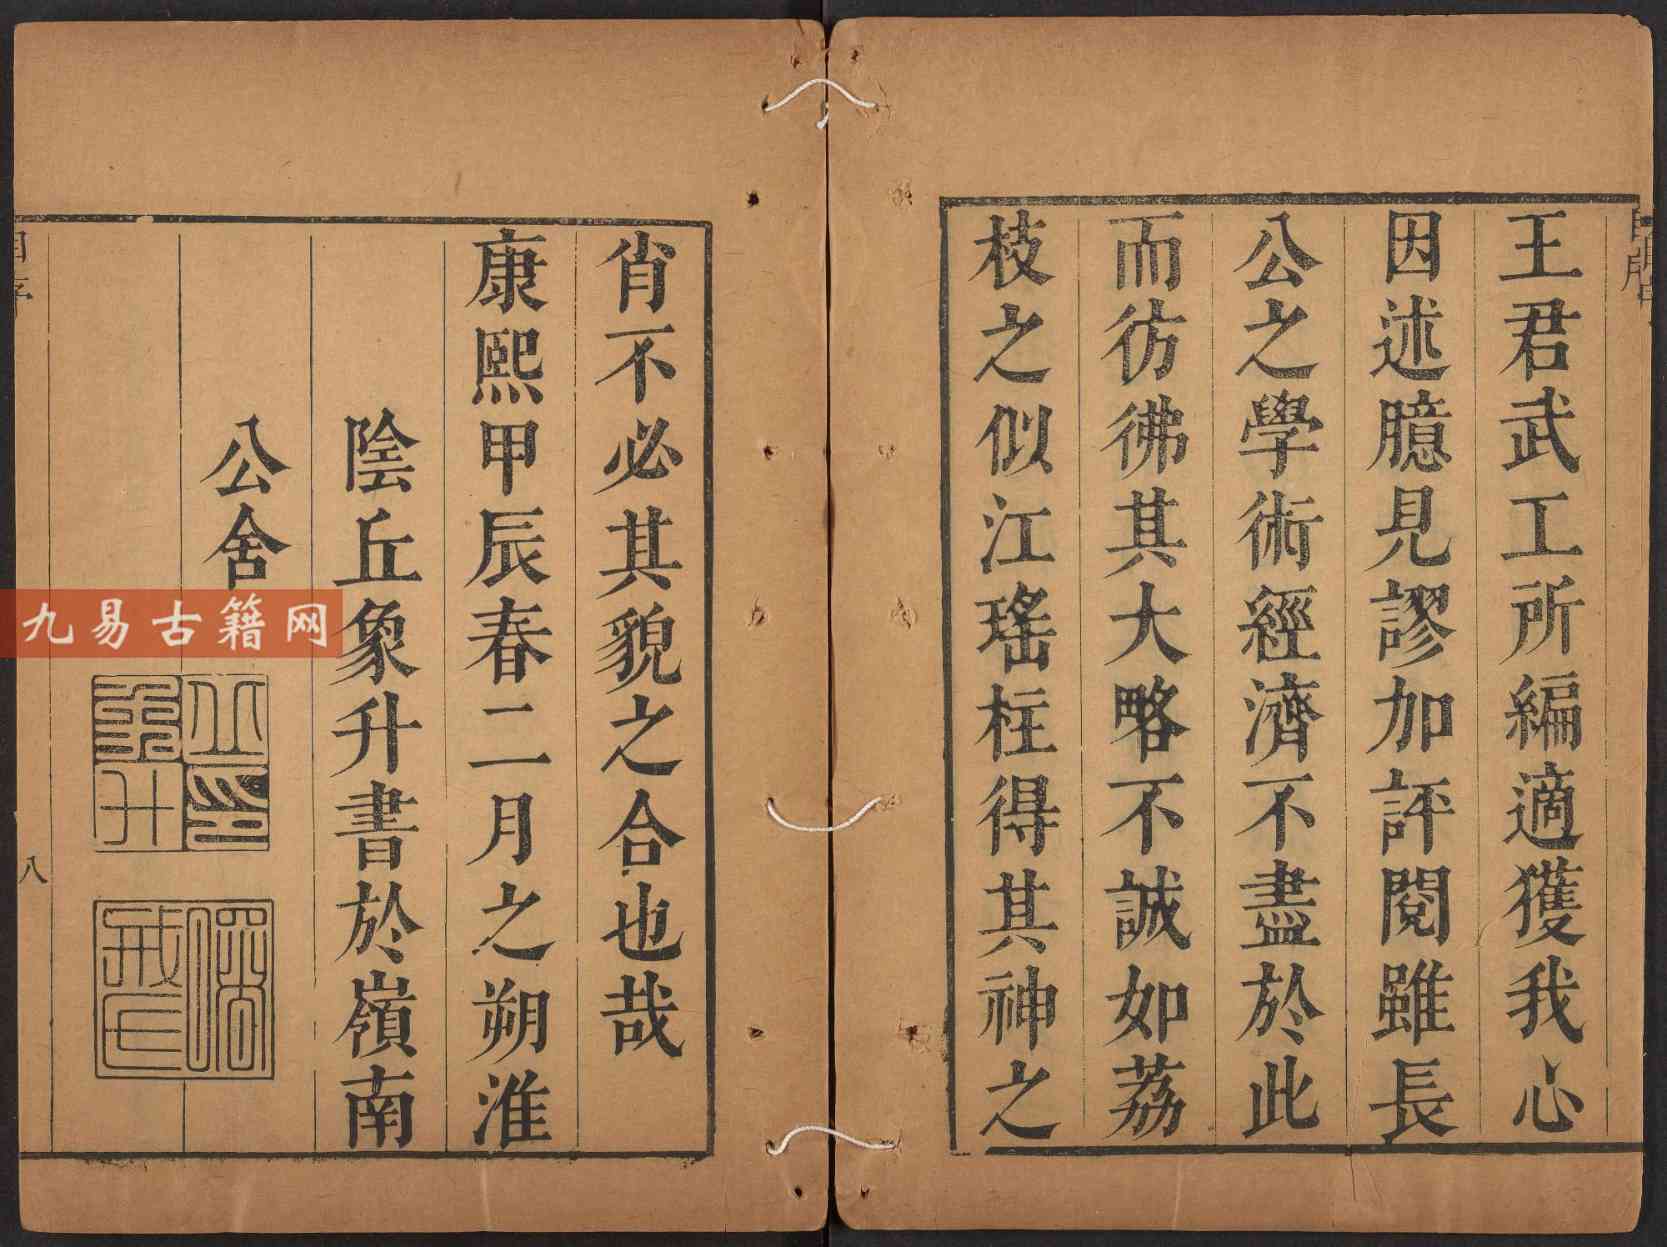 王君武工所編適獲我心
因述臆見謬加評閱雖長
公之學術經濟不盡於此
而彷彿其大略不誠如荔
枝之似江瑤柱得其神之
肖不必其貌之合也哉
康熙甲辰春二月之朔淮
陰丘象升書於嶺南
公舍
丘象升印
八
九易古籍网